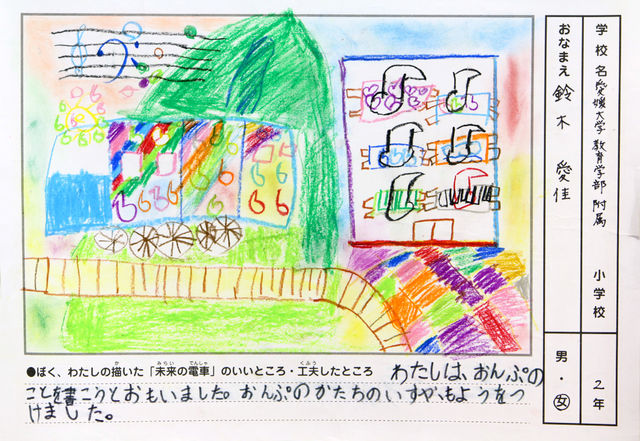 学校名 愛媛大学教育学部附属 小学校 2年
おなまえ 鈴木 愛佳 男・女
●ぼく、わたしの描いた「未来の電車」のいいところ・工夫したところ
わたしは、おんぷの
ことを書こうとおもいました。おんぷのかたちのいすや、もようをつ
けました。